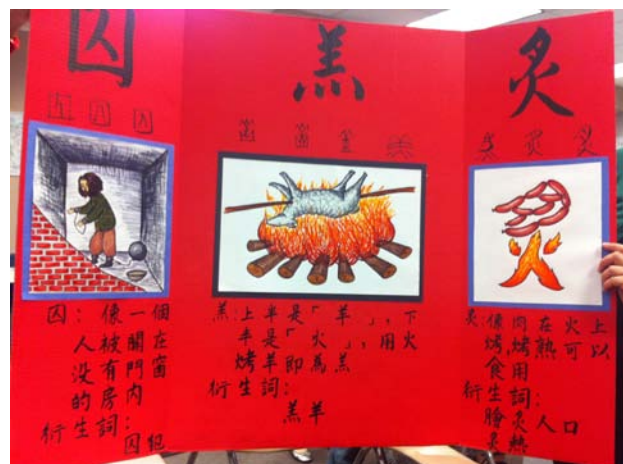 囚
囚：像一個
人被關在
没有門窗
的房内
衍生詞：
囚犯
羔
羔：上半是「羊」，下
半是「火」，用火
烤羊即為羔
衍生詞：
羔羊
炙
炙：像肉在火上
烤，烤熟可以
食用
衍生詞：
膾炙人口
炙熱